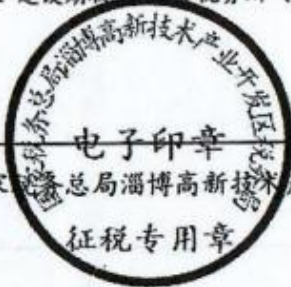 国家税务总局淄博高新技术产业开发区税务局
电子印章
务总局淄博高新技术
征税专用章